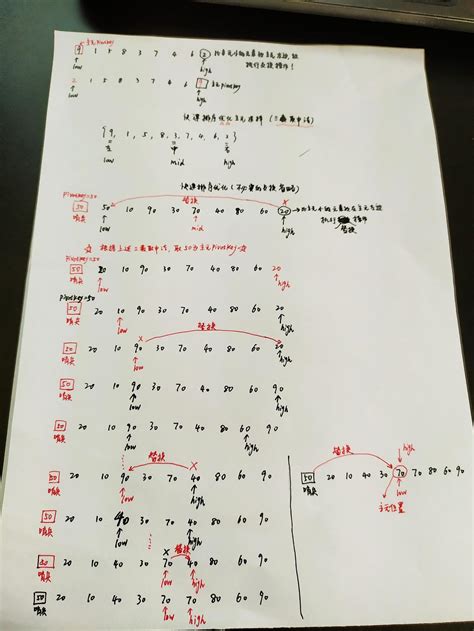 9 主元PivotKey
9 1 5 8 3 7 4 6 2
low high
执行交换操作!
2 1 5 8 3 7 4 6 9 主元PivotKey
low high
快速排序优化主元选择(三数取中法)
{9, 1, 5, 8, 3, 7, 4, 6, 2}
左 中 右
low mid high
快速排序优化(不必要的交换省略)
PivotKey=50
替换
50 50 10 90 30 70 40 80 60 20
哨兵 low mid high
执行 操作
替换
☆ 根据上述三数取中法, 取50为主元PivotKey
PivotKey=50
50 20 10 90 30 70 40 80 60 20
哨兵 low high
PivotKey=50
50 20 10 90 30 70 40 80 60 20
哨兵 low high
替换
50 20 10 90 30 70 40 80 60 20
哨兵 low high
50 20 10 90 30 70 40 80 60 90
哨兵 low high
50 20 10 90 30 70 40 80 60 90
哨兵 low high
替换
50 20 10 90 30 70 40 80 60 90
哨兵 low high
50 20 10 40 30 70 40 80 60 90
哨兵 low high
替换
50 20 10 40 30 70 40 80 60 90
哨兵 low high
50 20 10 40 30 70 70 80 60 90
哨兵 low high
替换 high
50 20 10 40 30 70 70 80 60 90
哨兵 low
主元位置